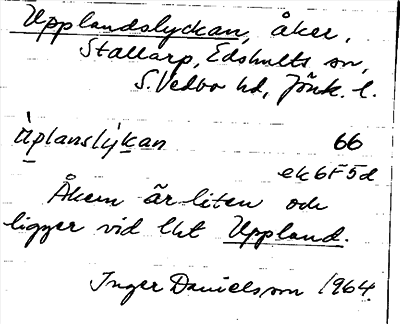 Upplandslyckan, åker,
Stallarp, Edshults sn,
S. Vedbo hd, Jönk. l.
ùplanslỳkan 66
ek 6F5d
Åkern är liten och
ligger vid lht Uppland.
Inger Danielsson 1964.